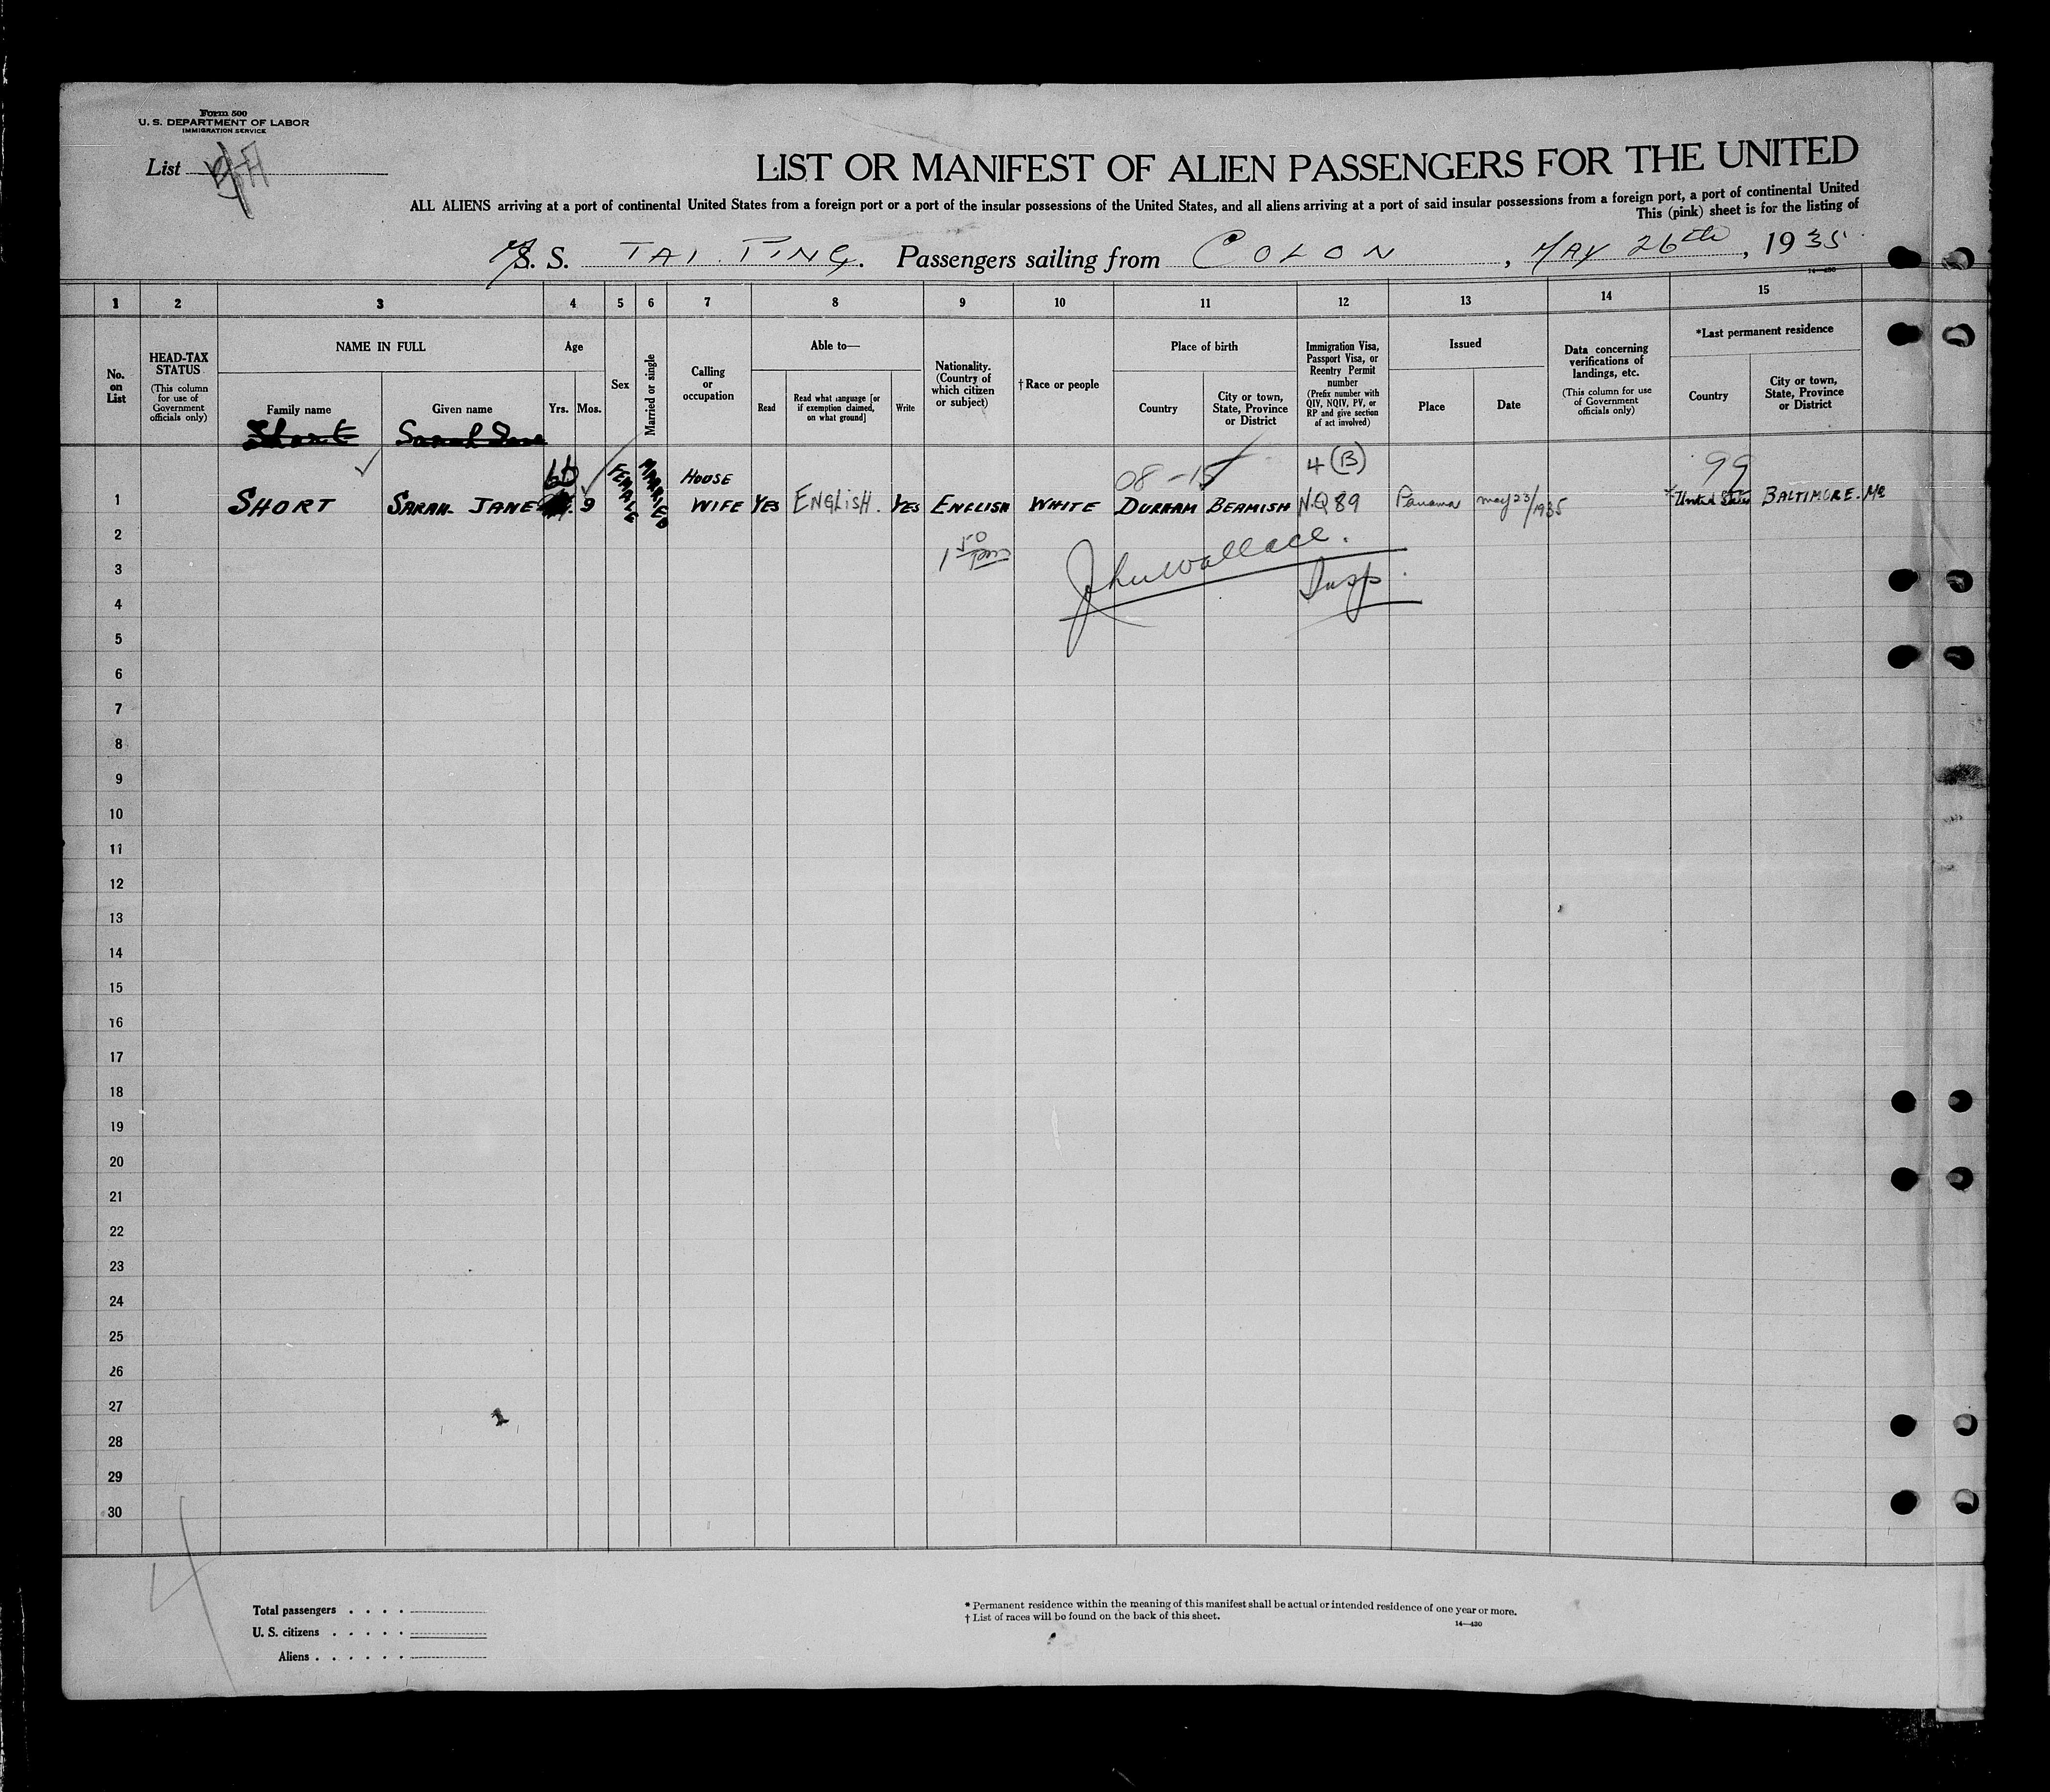 Form 500
U. S. DEPARTMENT OF LABOR
IMMIGRATION SERVICE
List
LIST OR MANIFEST OF ALIEN PASSENGERS FOR THE UNITED
ALL ALIENS arriving at a port of continental United States from a foreign port or a port of the insular possessions of the United States, and all aliens arriving at a port of said insular possessions from a foreign port, a port of continental United
This (pink) sheet is for the listing of
M/S. S. TAI PING. Passengers sailing from COLON, MAY 26th, 1935
14—430
1 2 3 4 5 6 7 8 9 10 11 12 13 14 15
No. on List
HEAD-TAX STATUS
(This column for use of Government officials only)
NAME IN FULL
Family name
Given name
Age
Yrs.
Mos.
Sex
Married or single
Calling or occupation
Able to—
Read
Read what language [or if exemption claimed, on what ground]
Write
Nationality. (Country of which citizen or subject)
†Race or people
Place of birth
Country
City or town, State, Province or District
Immigration Visa, Passport Visa, or Reentry Permit number
(Prefix number with QIV, NQIV, PV, or RP and give section of act involved)
Issued
Place
Date
Data concerning verifications of landings, etc.
(This column for use of Government officials only)
*Last permanent residence
Country
City or town, State, Province or District
Short Sarah Jane
60 HOUSE 08-15 4(B) 99
1 SHORT SARAH JANE 9 FEMALE MARRIED WIFE YES ENGLISH. YES ENGLISH WHITE DURHAM BEAMISH N.Q 89 Panama may 23/1935 United States BALTIMORE. Md
2
1 50 pm
John Wallace.
Insp.
3
4
5
6
7
8
9
10
11
12
13
14
15
16
17
18
19
20
21
22
23
24
25
26
27
28
29
30
Total passengers . . . .
U. S. citizens . . . . .
Aliens . . . . . .
* Permanent residence within the meaning of this manifest shall be actual or intended residence of one year or more.
† List of races will be found on the back of this sheet.
14—430